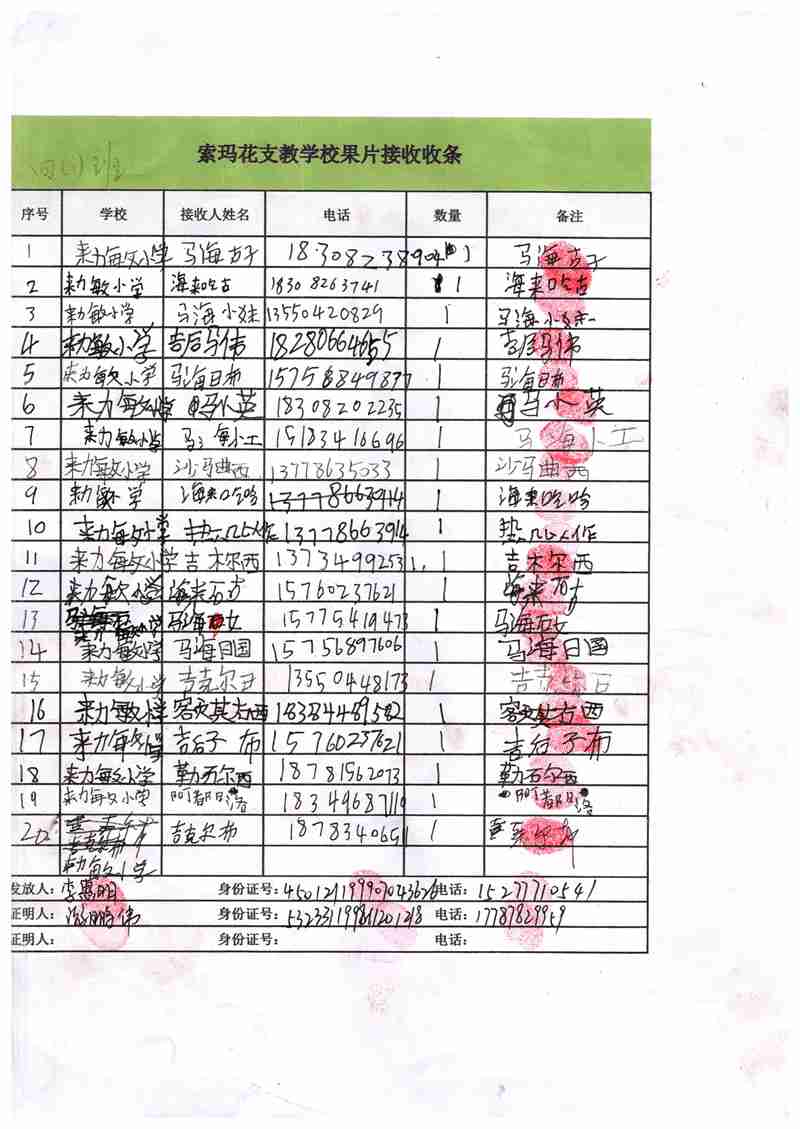 索玛花支教学校果片接收收条
四(1)班
序号 学校 接收人姓名 电话 数量 备注
1 来力每文小学 马海古子 18308238904 1 马海古子
2 来力敏小学 海来吃古 18308263741 1 海来吃古
3 来力敏小学 马海小妹 13550420829 1 马海小妹
4 来力敏小学 吉后马伟 18280664655 1 吉后马伟
5 来力敏小学 马海日布 1 马海日布
6 来力敏小学 马小英 18308202235 1 马小英
7 来力敏小学 马海小工 15183416696 1 马海小工
8 来力敏小学 沙马曲西 13778635033 1 沙马曲西
9 来力敏小学 海来吃哈 13778663914 1 海来吃哈
10 来力每文小学 13778663914 1
11 来力每文小学 吉木尔西 13734992531 1 吉木尔西
12 来力敏小学 海来石古 15760237621 1 海来石古
13 来力敏小学 马海石女 15775419473 1 马海石女
14 来力敏小学 马海日国 15751897606 1 马海日国
15 来力敏小学 吉克尔日 13550448173 1 吉克尔日
16 来力敏小学 18384489582 1
17 来力每文小学 吉后子布 15760237621 1 吉后子布
18 来力每文小学 勒石尔西 18781562073 1 勒石尔西
19 来力每文小学 阿都日洛 18349687110 1 阿都日洛
20 吉克尔布 18783406511 1
来力敏文小学
发放人: 李恩明 身份证号: 电话: 15277710541
证明人: 鹏伟 身份证号: 电话: 17787829959
证明人: 身份证号: 电话: